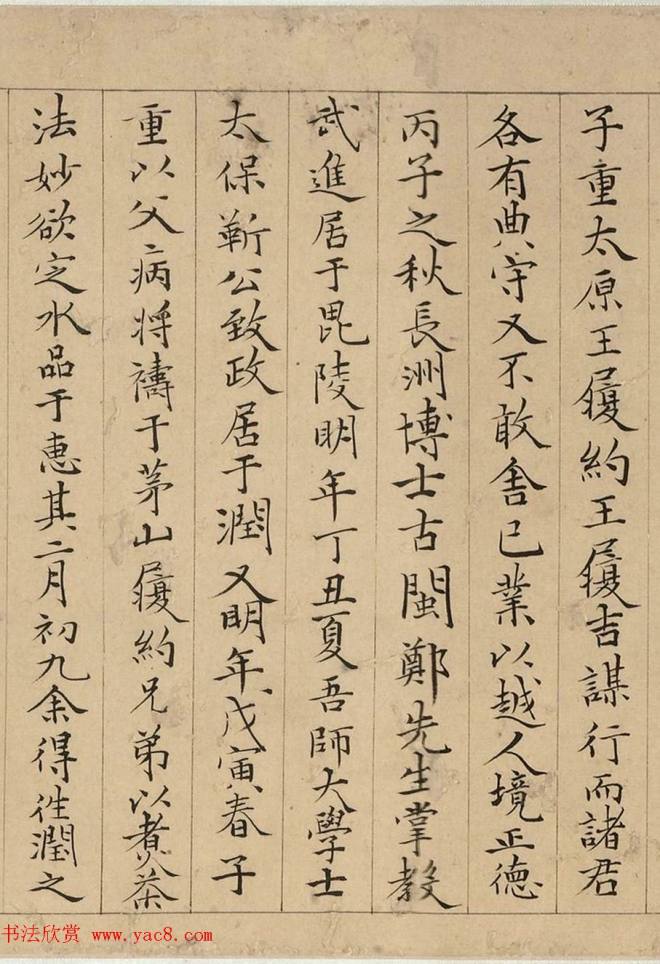 子重太原王履約王履吉謀行而諸君
各有典守又不敢舍己業以越人境正德
丙子之秋長洲博士古閩鄭先生掌教
武進居于毘陵明年丁丑夏吾師大學士
太保靳公致政居于潤又明年戊寅春子
重以父病将禱于茅山履約兄弟以煮茶
法妙欲定水品于惠其二月初九余得往潤之
书法欣赏 www.yac8.com